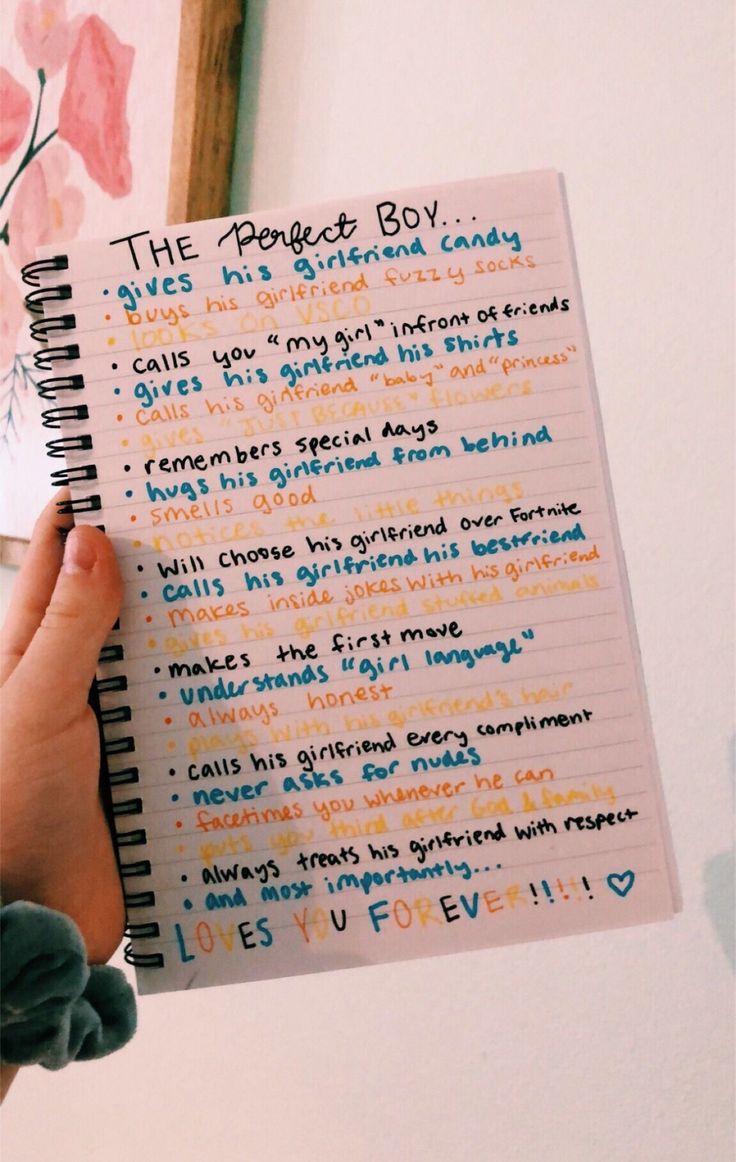 THE Perfect BOY...
• gives his girlfriend candy
• buys his girlfriend fuzzy socks
• looks on VSCO
• calls you "my girl" infront of friends
• gives his girlfriend his shirts
• calls his girlfriend "baby" and "princess"
• gives "JUST BECAUSE" flowers
• remembers special days
• hugs his girlfriend from behind
• smells good
• notices the little things
• Will choose his girlfriend over Fortnite
• calls his girlfriend his bestfriend
• makes inside jokes with his girlfriend
• gives his girlfriend stuffed animals
• makes the first move
• understands "girl language"
• always honest
• plays with his girlfriend's hair
• calls his girlfriend every compliment
• never asks for nudes
• facetimes you whenever he can
• puts you third after God & family
• always treats his girlfriend with respect
• and most importantly...
LOVES YOU FOREVER!!!!! ♡